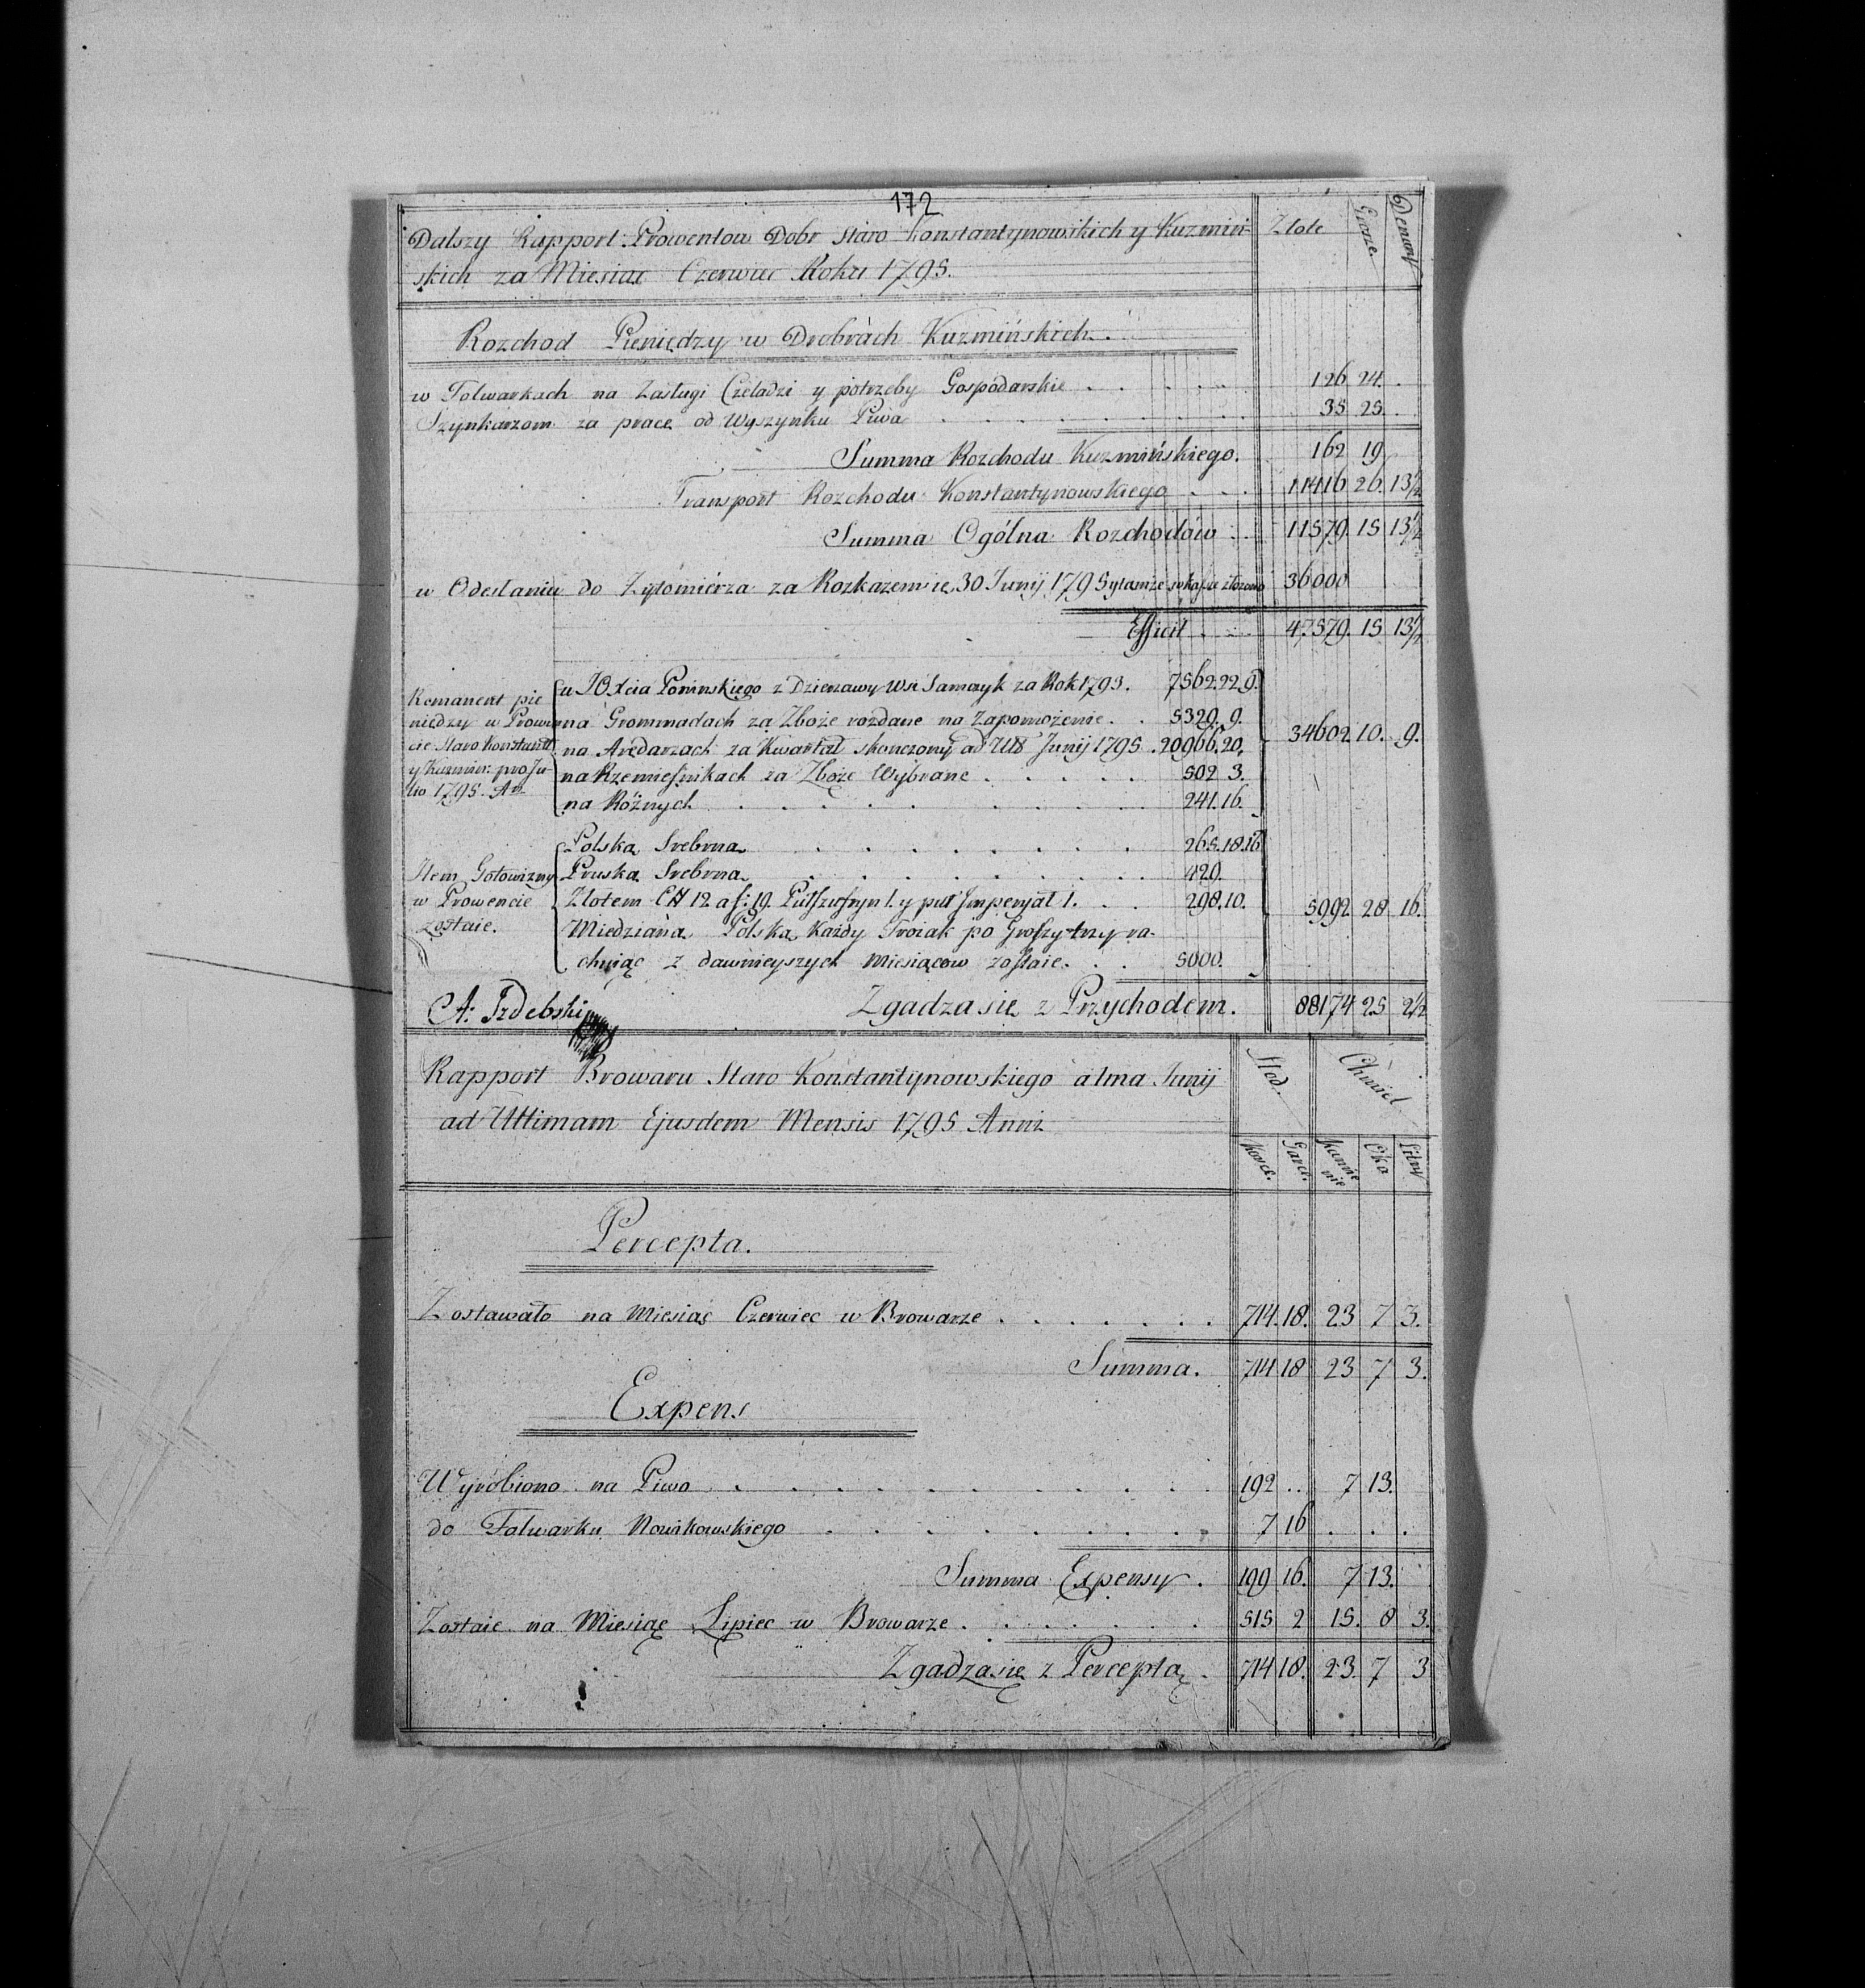 172
Dalszy Rapport Prowentow Dobr Staro Konstantynowskich y Kuzmiń- Złote Grosze Denary
skich za Miesiąc Czerwiec Roku 1795.
Rozchod Pieniędzy w Dobrach Kuzmińskich.
w Folwarkach na Zasługi Czeladzi y potrzeby Gospodarskie . . . . . 126 24. .
Szynkarzom za pracę od Wyszynku Piwa . . . . . . 35 25. .
Summa Rozchodu Kuzmińskiego. 162 19
Transport Rozchodu Konstantynowskiego . . . 11416 26. 13½
Summa Ogólna Rozchodów . . 11579. 15 13½
w Odesłaniu do Zytomierza za Rozkazem ie 30 Junij 1795 złożono 36000
Efficit . . . 47579. 15 13½
Remanent pie
niędzy w Prowen
cie Staro Konstant:
y Kuzmin: pro Ju-
lio 1795. An-
u JOXcia Poninskiego z Dzierzawy Wsi Samczyk za Rok 1793. 7562.22.9.
na Grommadach za Zboże rozdane na Zapomożenie . . 5329. 9.
na Aredarzach za Kwartał skonczony ad Ult Junij 1795 . 20966.20.
na Rzemieśnikach za Zboże Wybrane . . . . . 502 3.
na Rożnych . . . . . . . 241.16.
34602. 10. 9.
Item Gotowizny
w Prowencie
zostaie.
Polska Srebrna . . . . . . . 265.18.16
Pruska Srebrna . . . . . . . 429.
Złotem CH 12 a f: 19. y puł Imperyał 1. . . 298.10.
Miedziana Polska Każdy Troiak po Groszy trzy ra-
chuiąc z dawnieyszych Miesiącow zostaie . . . 5000.
5992 28 16.
A: Izdebski Zgadza się z Przychodem. 88174 25 2½
Rapport Browaru Staro Konstantynowskiego a 1ma Junij Słod. Chmiel
ad Ultimam Ejusdem Mensis 1795 Anni
Korce. Garce. Kamie nie Oka Litry
Percepta.
Zostawało na Miesiąc Czerwiec w Browarze . . . . . . . 714. 18. 23 7 3.
Summa. 714 18 23 7 3.
Expens
Wyrobiono na Piwo . . . . . . . . . . 192 . . 7 13.
do Folwarku Nowikowskiego . . . . . . . . 7 16 . . .
Summa Expensy . 199 16. 7 13.
Zostaie na Miesiąc Lipiec w Browarze . . . . . . . 515 2 15. 8 3.
Zgadza się z Perceptą . 714 18. 23. 7 3